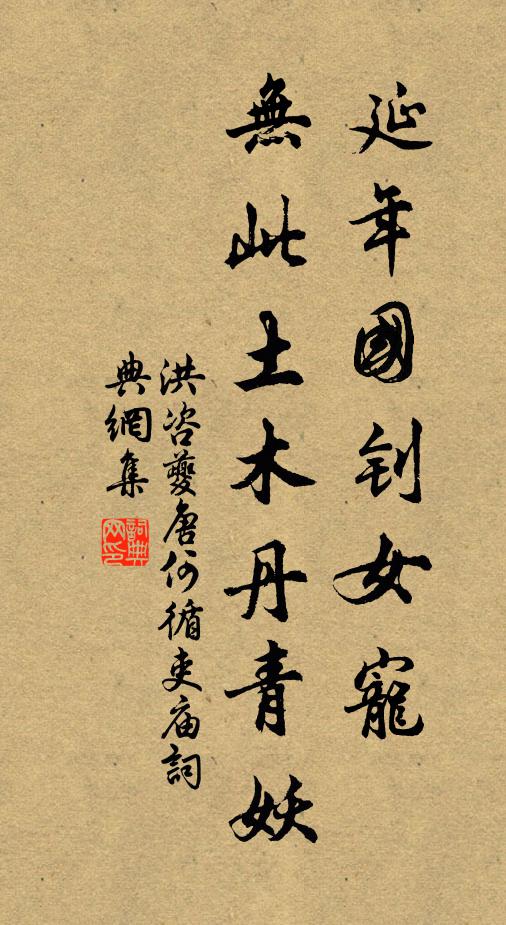 延年國钊女寵
無此土木丹青妖
洪咨夔唐何循吏庙詞
典網集
詞典網印